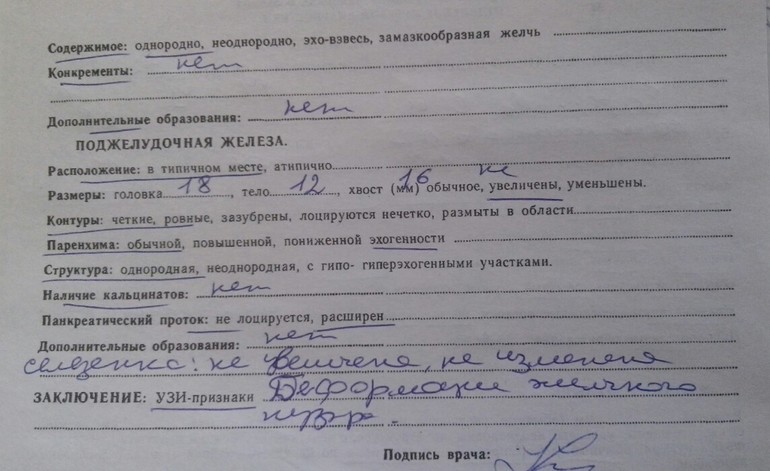 Содержимое: однородно, неоднородно, эхо-взвесь, замазкообразная желчь
Конкременты: нет
Дополнительные образования: нет
ПОДЖЕЛУДОЧНАЯ ЖЕЛЕЗА.
Расположение: в типичном месте, атипично
не
Размеры: головка 18, тело 12, хвост (мм) 16 обычное, увеличены, уменьшены.
Контуры: четкие, ровные, зазубрены, лоцируются нечетко, размыты в области
Паренхима: обычной, повышенной, пониженной эхогенности
Структура: однородная, неоднородная, с гипо- гиперэхогенными участками.
Наличие кальцинатов: нет
Панкреатический проток: не лоцируется, расширен
Дополнительные образования: нет
селезенка: не увеличена, не изменена
ЗАКЛЮЧЕНИЕ: УЗИ-признаки Деформации желчного
пузыр.
Подпись врача: